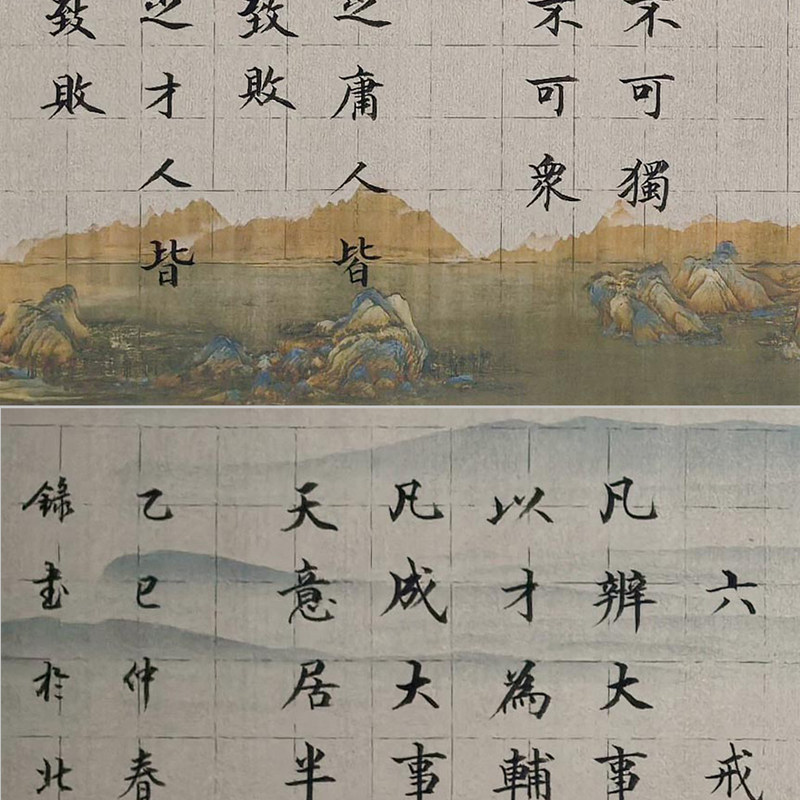 不可獨
不可衆
之庸人皆
致敗
之才人皆
致敗
六戒
凡辦大事
以才為輔
凡成大事
天意居半
乙巳仲春
錄書於北